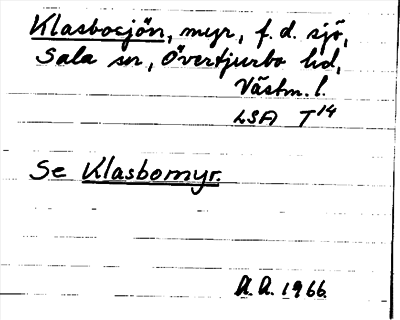 Klasbosjön, myr, f. d. sjö,
Sala sn, Övertjurbo hd,
Västm. l.
LSA T14
Se Klasbomyr.
A. A. 1966.